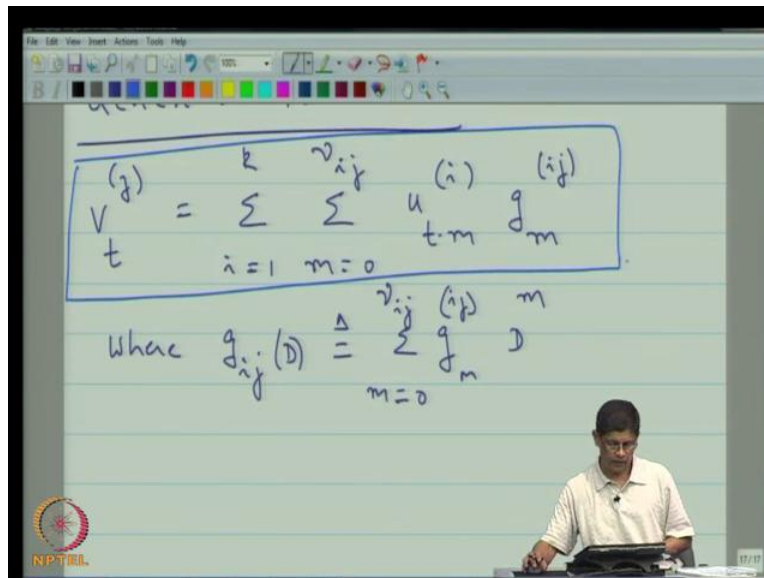 File Edit View Insert Actions Tools Help
100%
V_t^{(j)} = Σ_{i=1}^{k} Σ_{m=0}^{ν_{ij}} u_{t-m}^{(i)} g_m^{(ij)}
Where g_{ij}(D) ≜ Σ_{m=0}^{ν_{ij}} g_m^{(ij)} D^m
NPTEL
17/17